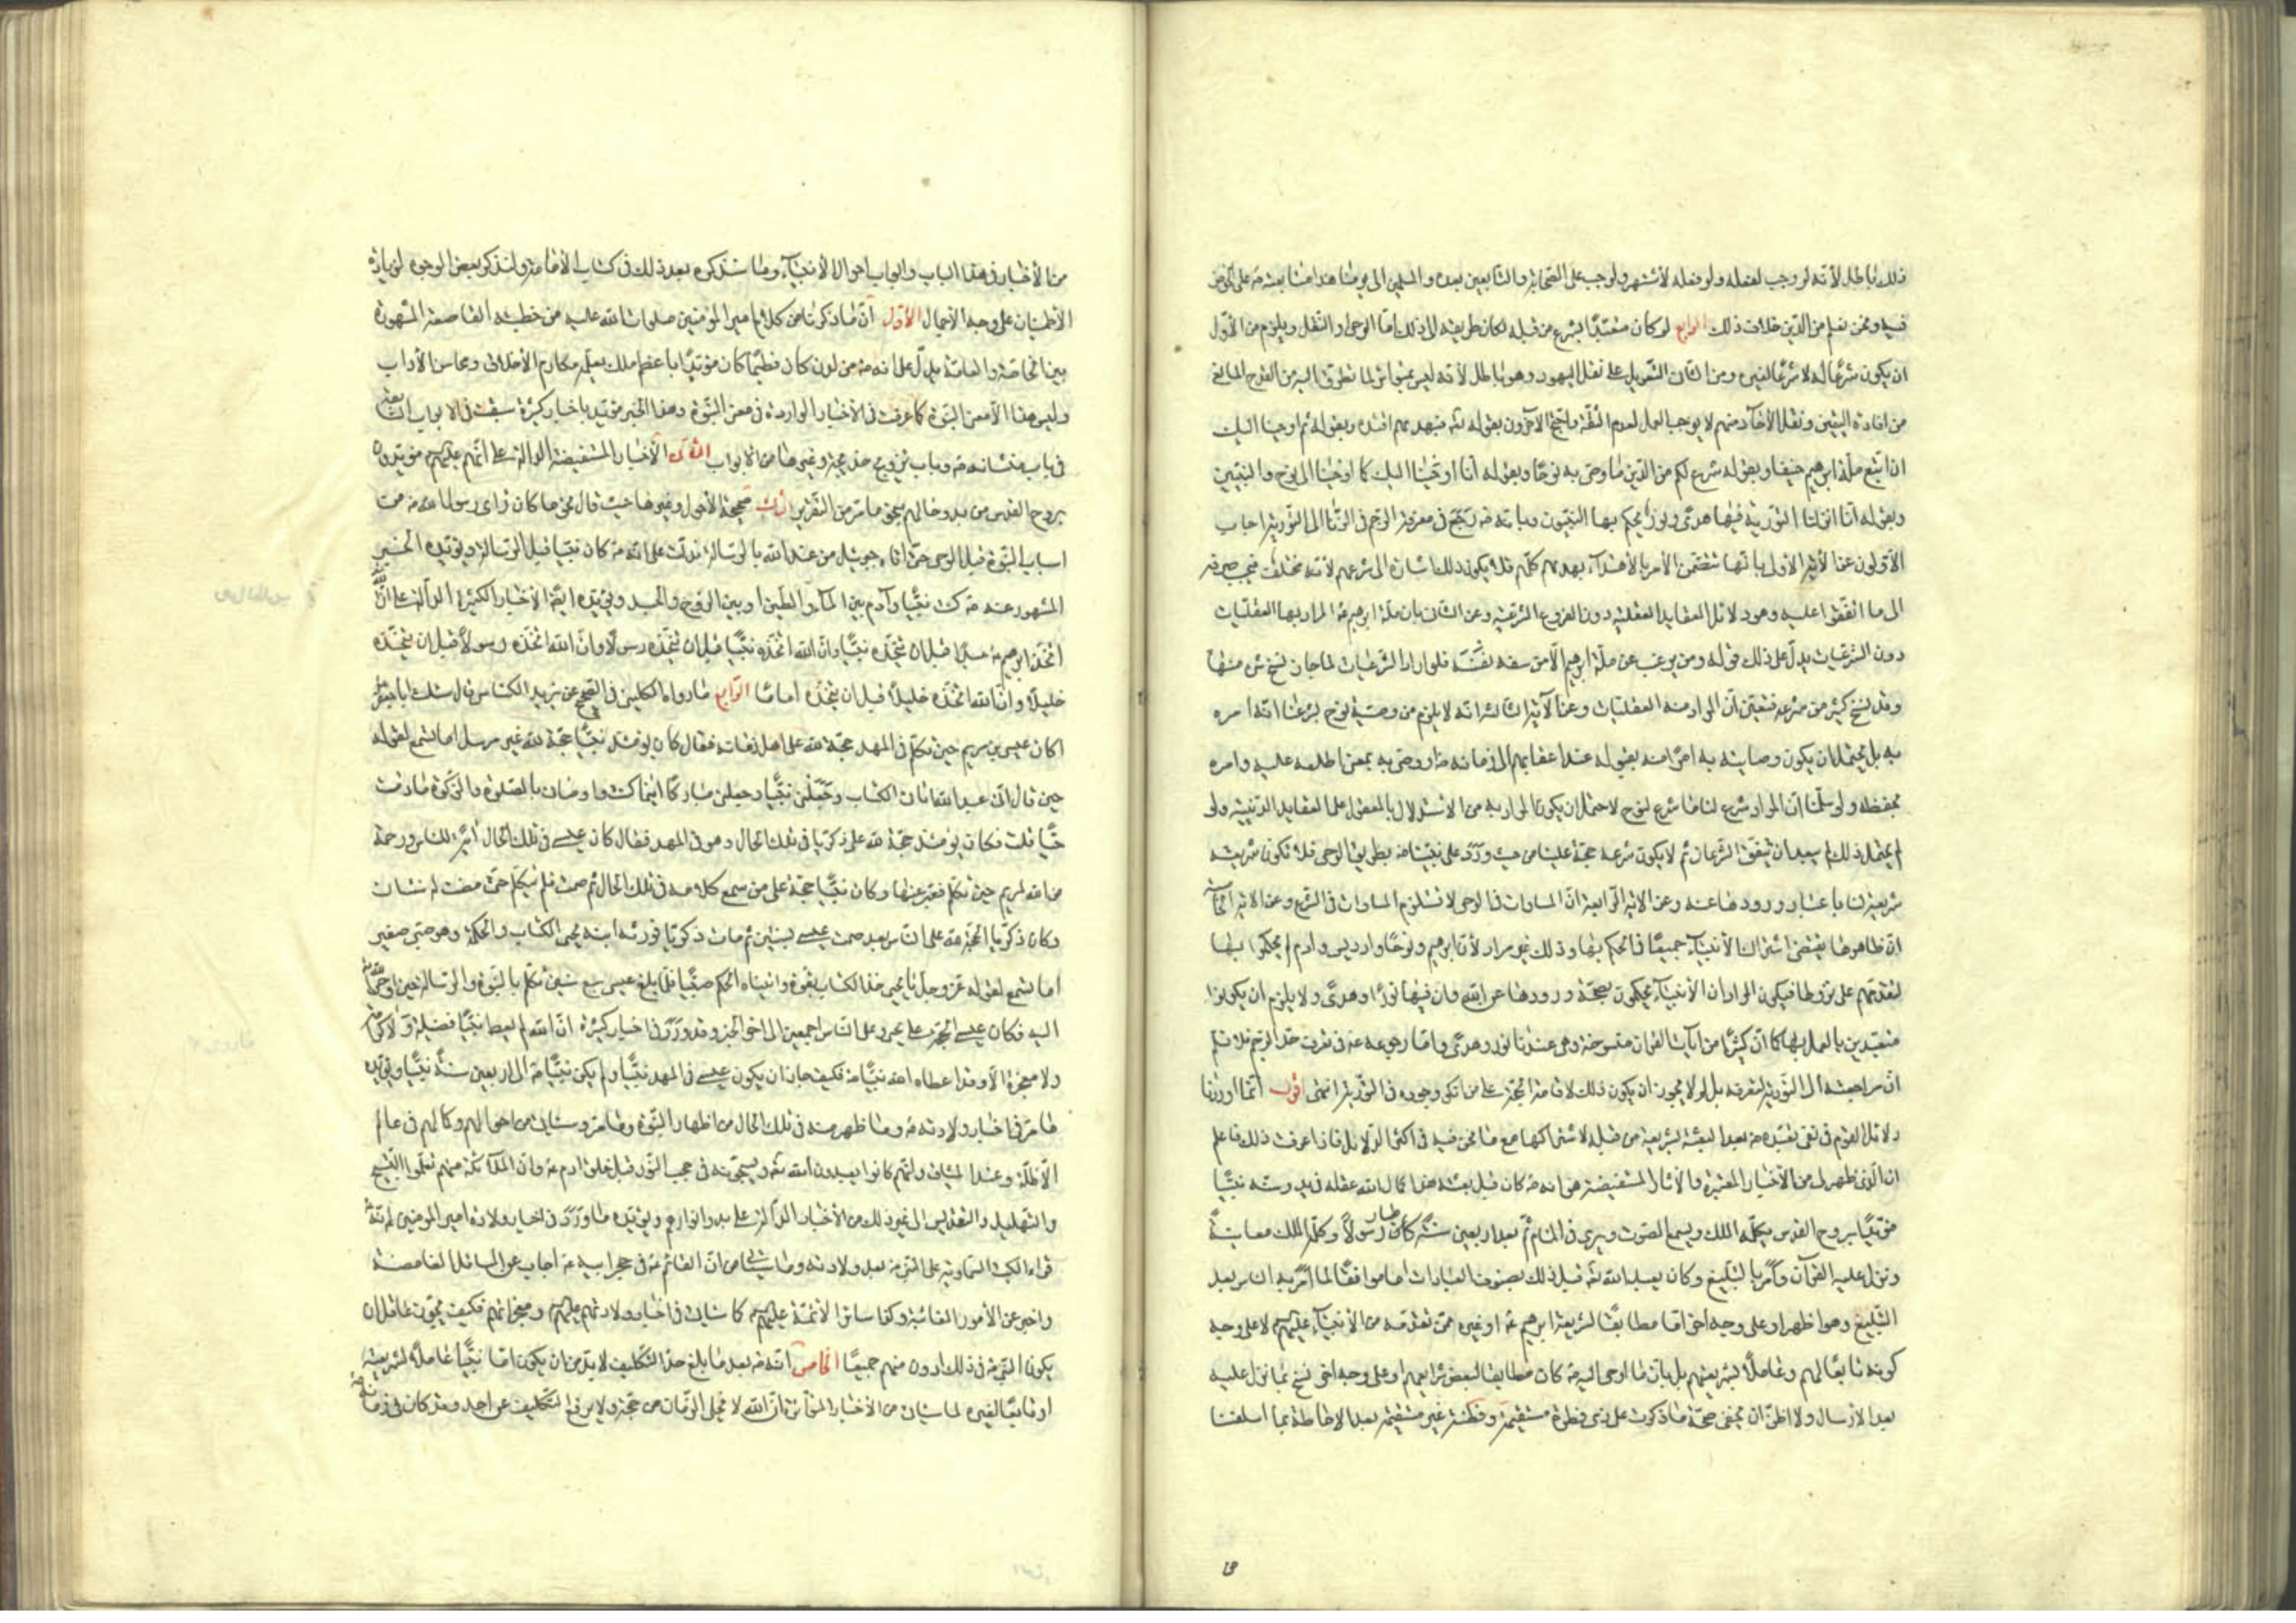 ذلك باطل لأنه لو وجب لفعله ولو فعله لأشتهر ولوجب على الصحابة والتابعين بعده والمسلمين الى يومنا هذا متابعته ص على الخوض
فيه ونحن نعلم من الدين خلاف ذلك الرابع لو كان متعبدا بشرع من قبله لكان طريقه الى ذلك اما الوحى او النقل ويلزم من الأول
ان يكون شرعا له لا شرعا لغيره ومن الثانى التعويل على نقل اليهود وهو باطل لأنه ليس بمتواتر لما تطرق اليه من القدح المانع
من افادة اليقين ونقل الأحاد منهم لا يوجب العمل لعدم الثقة واحتج الآخرون بقوله تع فبهديهم اقتده وبقوله ثم اوحينا اليك
ان اتبع ملة ابرهيم حنيفا وبقوله شرع لكم من الدين ما وصى به نوحا وبقوله انا اوحينا اليك كما اوحينا الى نوح والنبيين
وبقوله انا انزلنا التورية فيها هدى ونور يحكم بها النبيون وبانه ص رجع فى معرفة الرجم فى الزنا الى التورية اجاب
الأولون عن الأية الأولى بانها تتضمن الأمر بالأقتداء بهديهم كلهم فلا يكون ذلك اشارة الى شرعهم لأنه مختلف فيجب صرفه
الى ما اتفقوا عليه وهو دلائل العقايد العقلية دون الفروع الشرعية وعن الثانى بان ملة ابرهيم ع المراد بها العقليات
دون الشرعيات يدل على ذلك قوله ومن يرغب عن ملة ابرهيم الا من سفه نفسه فلو اراد الشرعيات لما جاز نسخ شئ منها
وقد نسخ كثير من شرعه فتعين ان المراد منه العقليات وعن الآية الثالثة انه لا يلزم من وصية نوح بشرعنا انه امره
به بل يحتمل ان يكون وصايته به امرا منه بقبوله عند اعقابهم الى زمانه ص او وصى به بمعنى اطلعه عليه وامره
بحفظه ولو سلمنا ان المراد شرع لنا ما شرع لنوح لاحتمل ان يكون المراد به من الاستدلال بالمعقول على العقايد الدينية ولو
لم يحتمل ذلك لم يبعد ان يتفق الشرعان ثم لا يكون شرعه حجة علينا من حيث ورد على نبينا ص بطريق الوحى فلا تكون شريعته
شريعة لنا باعتبار ورودها عنه وعن الاية الرابعة ان المساوات فى الوحى لا تستلزم المساوات فى الشرع وعن الاية الخامسة
ان ظاهرها يقتضى اشتراك الأنبياء جميعا فى الحكم بها وذلك غير مراد لأن ابرهيم ونوحا وادريس وادم لم يحكموا بها
لتقدمهم على نزولها فيكون المراد ان الأنبياء يحكمون بصحة ورودها عن الله وان فيها نورا وهدى ولا يلزم ان يكونوا
متعبدين بالعمل بها كما ان كثيرا من آيات القران منسوخة وهى عندنا نور وهدى واما رجوعه ع فى تعرف حد الرجم فلا نسلم
ان مراجعته الى التورية لتعرفه بل لم لا يجوز ان يكون ذلك لاقامة الحجة على من انكر وجوده فى التورية انتهى اقول انما اوردنا
دلائل القوم فى نفى تعبده ص بعد البعثة بشريعة من قبله لاشتراكها مع ما نحن فيه فى اكثر الدلائل فاذا عرفت ذلك فاعلم
ان الذى ظهر لى من الأخبار المعتبرة والأثار المستفيضة هو انه ص كان قبل بعثته مذ اكمل الله عقله فى بدو سنه نبيا
مؤيدا بروح القدس يكلمه الملك ويسمع الصوت ويرى فى المنام ثم بعد اربعين سنة صار رسولا وكلمه الملك معاينة
ونزل عليه القرآن وأمر بالتبليغ وكان يعبد الله تع قبل ذلك بصنوف العبادات اما موافقا لما أمر به الناس بعد
التبليغ وهو اظهر او على وجه اخر اما مطابقا لشريعة ابرهيم ع او غيره ممن تقدمه من الأنبياء عليهم السلام لا على وجه
كونه تابعا لهم وعاملا بشريعتهم بل بان ما اوحى اليه ص كان مطابقا لبعض شرايعهم او على وجه اخر نسخ بما نزل عليه
بعد الارسال ولا اظن ان يخفى صحة ما ذكرت على ذى فطرة مستقيمة وفطنة غير سقيمة بعد الاحاطة بما اسلفنا
من الأخبار فى هذا الباب وابواب احوال الأنبياء وما سنذكره بعد ذلك فى كتاب الأمامة ولنذكر بعض الوجوه لزيادة
الأطمينان على وجه الأجمال الأول ان ما ذكرنا من كلام امير المؤمنين صلوات الله عليه من خطبته القاصعة المشهورة
بين الخاصة والعامة يدل على انه ص من لدن كان فطيما كان مؤيدا باعظم ملك يعلمه مكارم الأخلاق ومحاسن الأداب
وليس هذا الا معنى النبوة كما عرفت فى الأخبار الواردة فى معنى النبوة وهذا الخبر مؤيد باخبار كثيرة سبقت فى الابواب السابقة
فى باب منشائه ص وباب تزويج خديجة وغيرها من الابواب الثانى الأخبار المستفيضة الدالة على انهم عليهم السلام مؤيدون
بروح القدس من بدو حالهم بنحو ما مر من التقرير الثالث صحيحة الأحول وغيرها حيث قال نحو ما كان رأى رسول الله ص من
اسباب النبوة قبل الوحى حتى اتاه جبرئيل من عند الله بالرسالة فدلت على انه ص كان نبيا قبل الرسالة ويؤيده الخبر
المشهور عنه ص كنت نبيا وآدم بين الماء والطين او بين الروح والجسد ويؤيده ايضا الأخبار الكثيرة الدالة على ان الله
اتخذ ابرهيم ع عبدا قبل ان يتخذه نبيا وان الله اتخذه نبيا قبل ان يتخذه رسولا وان الله اتخذه رسولا قبل ان يتخذه
خليلا وان الله اتخذه خليلا قبل ان يتخذه اماما الرابع ما رواه الكلينى فى الصحيح عن يزيد الكناسى قال سئلت ابا جعفر ع
اكان عيسى بن مريم حين تكلم فى المهد حجة لله على اهل زمانه فقال كان يومئذ نبيا حجة لله غير مرسل اما تسمع لقوله
حين قال انى عبد الله اتانى الكتاب وجعلنى نبيا وجعلنى مباركا اينما كنت واوصانى بالصلوة والزكوة ما دمت
حيا قلت فكان يومئذ حجة لله على زكريا فى تلك الحال وهو فى المهد فقال كان عيسى فى تلك الحال آية للناس ورحمة
من الله لمريم حين تكلم فعبر عنها وكان نبيا حجة على من سمع كلامه فى تلك الحال ثم صمت فلم يتكلم حتى مضت له سنتان
وكان زكريا الحجة لله على الناس بعد صمت عيسى بسنتين ثم مات زكريا فورثه ابنه يحيى الكتاب والحكمة وهو صبى صغير
اما تسمع لقوله عز وجل يا يحيى خذ الكتاب بقوة واتيناه الحكم صبيا فلما بلغ عيسى سبع سنين تكلم بالنبوة والرسالة حين اوحى الله
اليه فكان عيسى الحجة على يحيى وعلى الناس اجمعين الى اخر الخبر وقد ورد فى اخبار كثيرة ان الله لم يعط نبيا فضيلة ولا كرامة
ولا معجزة الا وقد اعطاه الله نبينا ص فكيف جاز ان يكون عيسى فى المهد نبيا ولم يكن نبينا ص الى اربعين سنة نبيا ويؤيده
ما مر فى اخبار ولادته ص وما ظهر منه فى تلك الحال من اظهار النبوة وما مر وسيأتى من احوالهم وكمالهم فى عالم
الأظلة وعند الميثاق وانهم كانوا يعبدون الله تع ويسبحونه فى حجب النور قبل خلق ادم ع وان الملائكة منهم تعلموا التسبيح
والتهليل والتقديس الى غير ذلك من الأخبار الدالة على بدو انوارهم ويؤيده ما ورد فى اخبار ولادة امير المؤمنين ع انه
قراء الكتب السماوية على النبى ص بعد ولادته وما سيأتى من ان القائم ع فى حجر ابيه ع اجاب عن المسائل الغامضة
واخبر عن الأمور الغائبة وكذا سائر الأئمة عليهم السلام كما سيأتى فى اخبار ولادتهم عليهم السلام ومعجزاتهم فكيف يجوز عاقل ان
يكون النبى ص فى ذلك ادون منهم جميعا الخامس انه ص بعد ما بلغ حد التكليف لا بد من ان يكون اما نبيا عاملا بشريعته
او تابعا لغيره لما سيأتى من الأخبار المتواترة ان الله لا يخلى الزمان من حجة ولا يرفع التكليف عن احد وقد كان فى زمانه ص